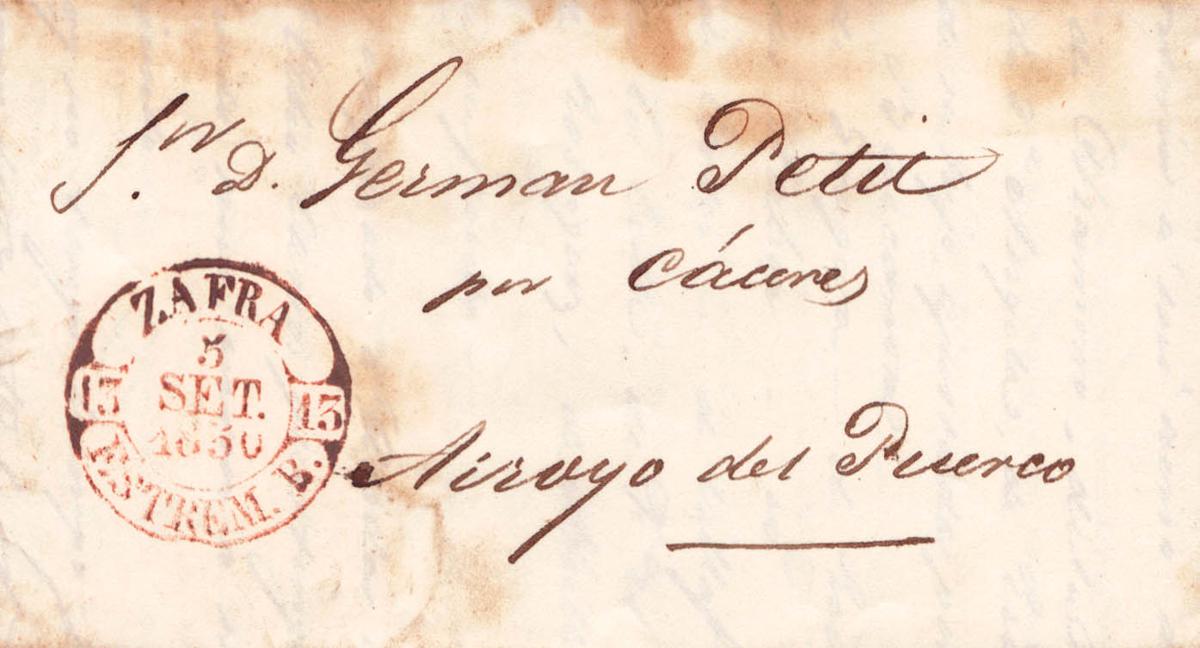 Sor. D. German Petit
por Cáceres
Arroyo del Puerco
ZAFRA
5
SET.
1850
13 13
ESTREM. B.